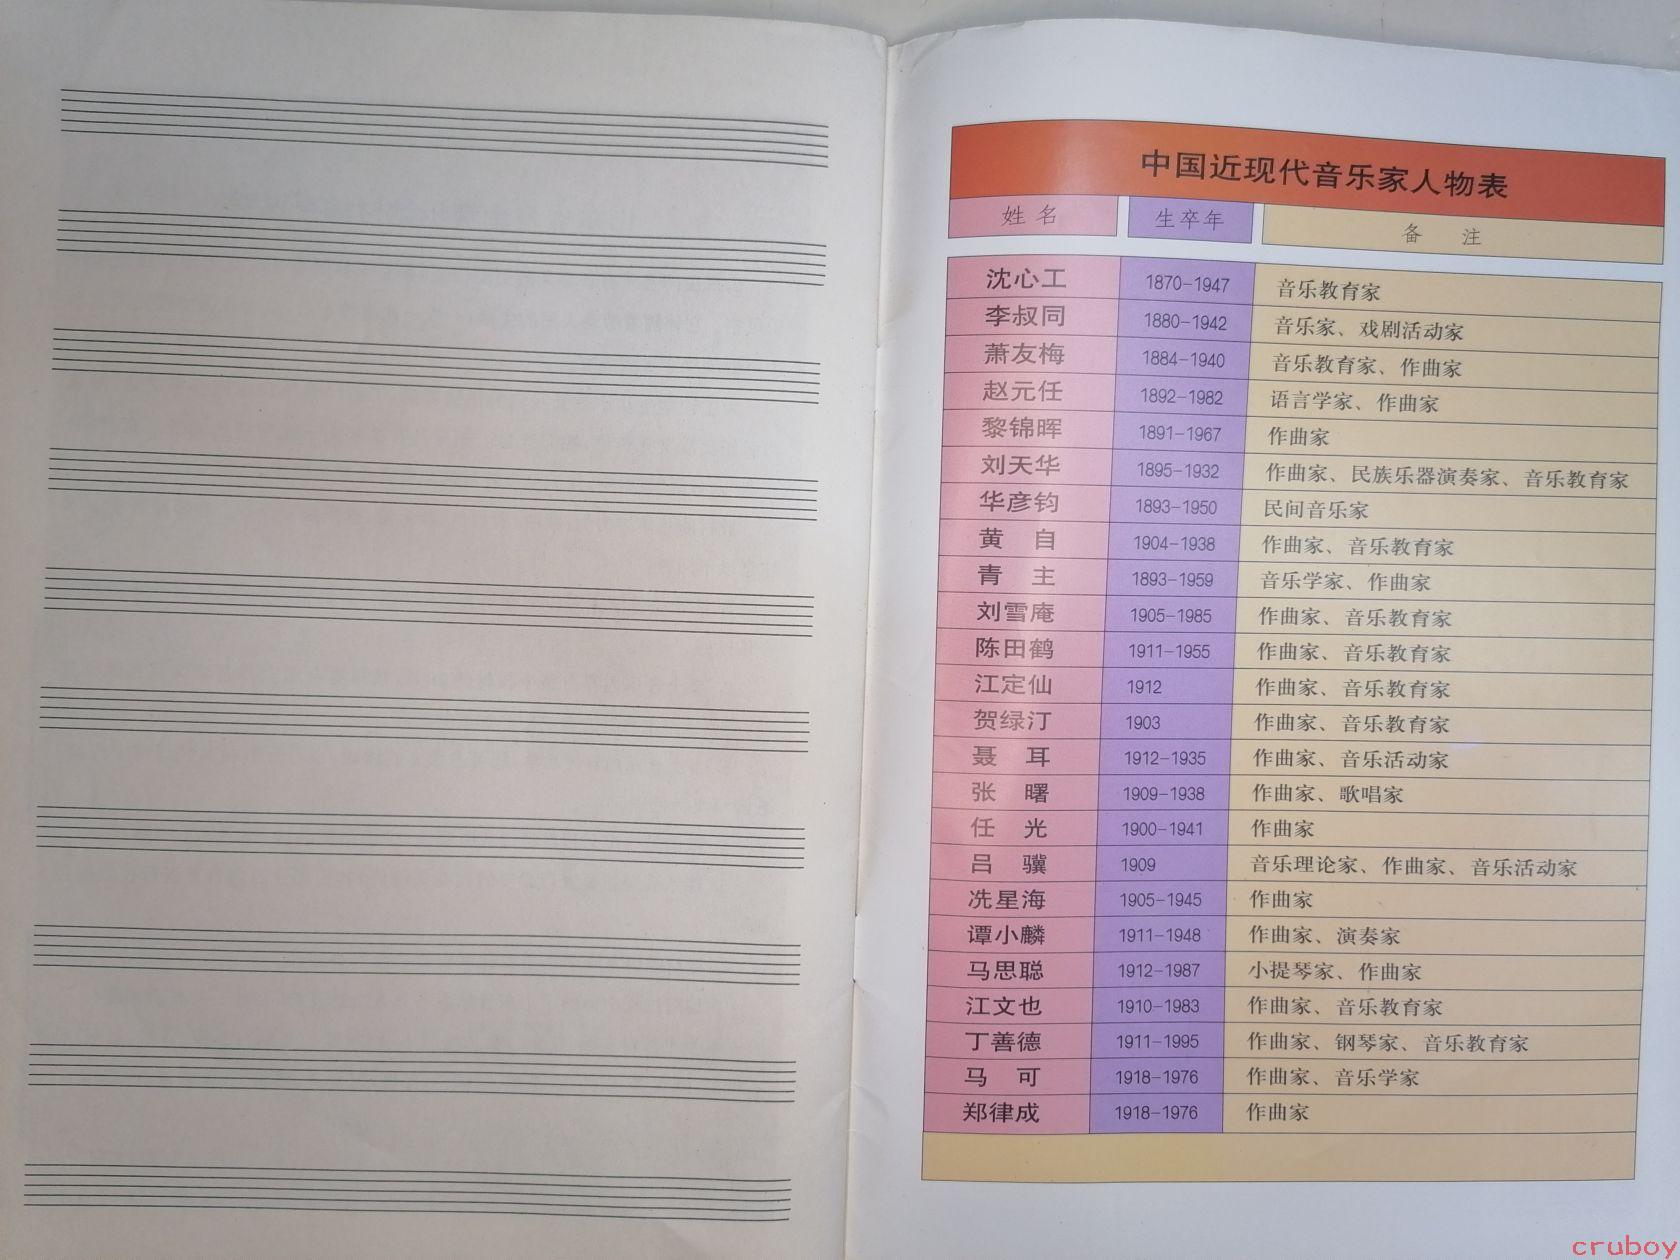 中国近现代音乐家人物表
姓名 生卒年 备注
沈心工 1870-1947 音乐教育家
李叔同 1880-1942 音乐家、戏剧活动家
萧友梅 1884-1940 音乐教育家、作曲家
赵元任 1892-1982 语言学家、作曲家
黎锦晖 1891-1967 作曲家
刘天华 1895-1932 作曲家、民族乐器演奏家、音乐教育家
华彦钧 1893-1950 民间音乐家
黄自 1904-1938 作曲家、音乐教育家
青主 1893-1959 音乐学家、作曲家
刘雪庵 1905-1985 作曲家、音乐教育家
陈田鹤 1911-1955 作曲家、音乐教育家
江定仙 1912 作曲家、音乐教育家
贺绿汀 1903 作曲家、音乐教育家
聂耳 1912-1935 作曲家、音乐活动家
张曙 1909-1938 作曲家、歌唱家
任光 1900-1941 作曲家
吕骥 1909 音乐理论家、作曲家、音乐活动家
冼星海 1905-1945 作曲家
谭小麟 1911-1948 作曲家、演奏家
马思聪 1912-1987 小提琴家、作曲家
江文也 1910-1983 作曲家、音乐教育家
丁善德 1911-1995 作曲家、钢琴家、音乐教育家
马可 1918-1976 作曲家、音乐学家
郑律成 1918-1976 作曲家
cruboy